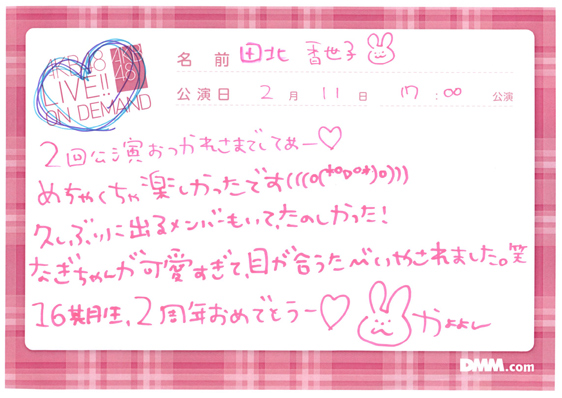 AKB48 LIVE!! ON DEMAND
AKB 48
名前 田北 香世子
公演日 2月 11日 17:00 公演
2回公演おつかれさまでしてあー♡
めちゃくちゃ楽しかったです(((o(*°▽°*)o)))
久しぶりに出るメンバーもいて、たのしかった!
なぎちゃんが可愛すぎて、目が合うたべいやされました。笑
16期生、2周年おめでとうー♡ かよよん
DMM.com